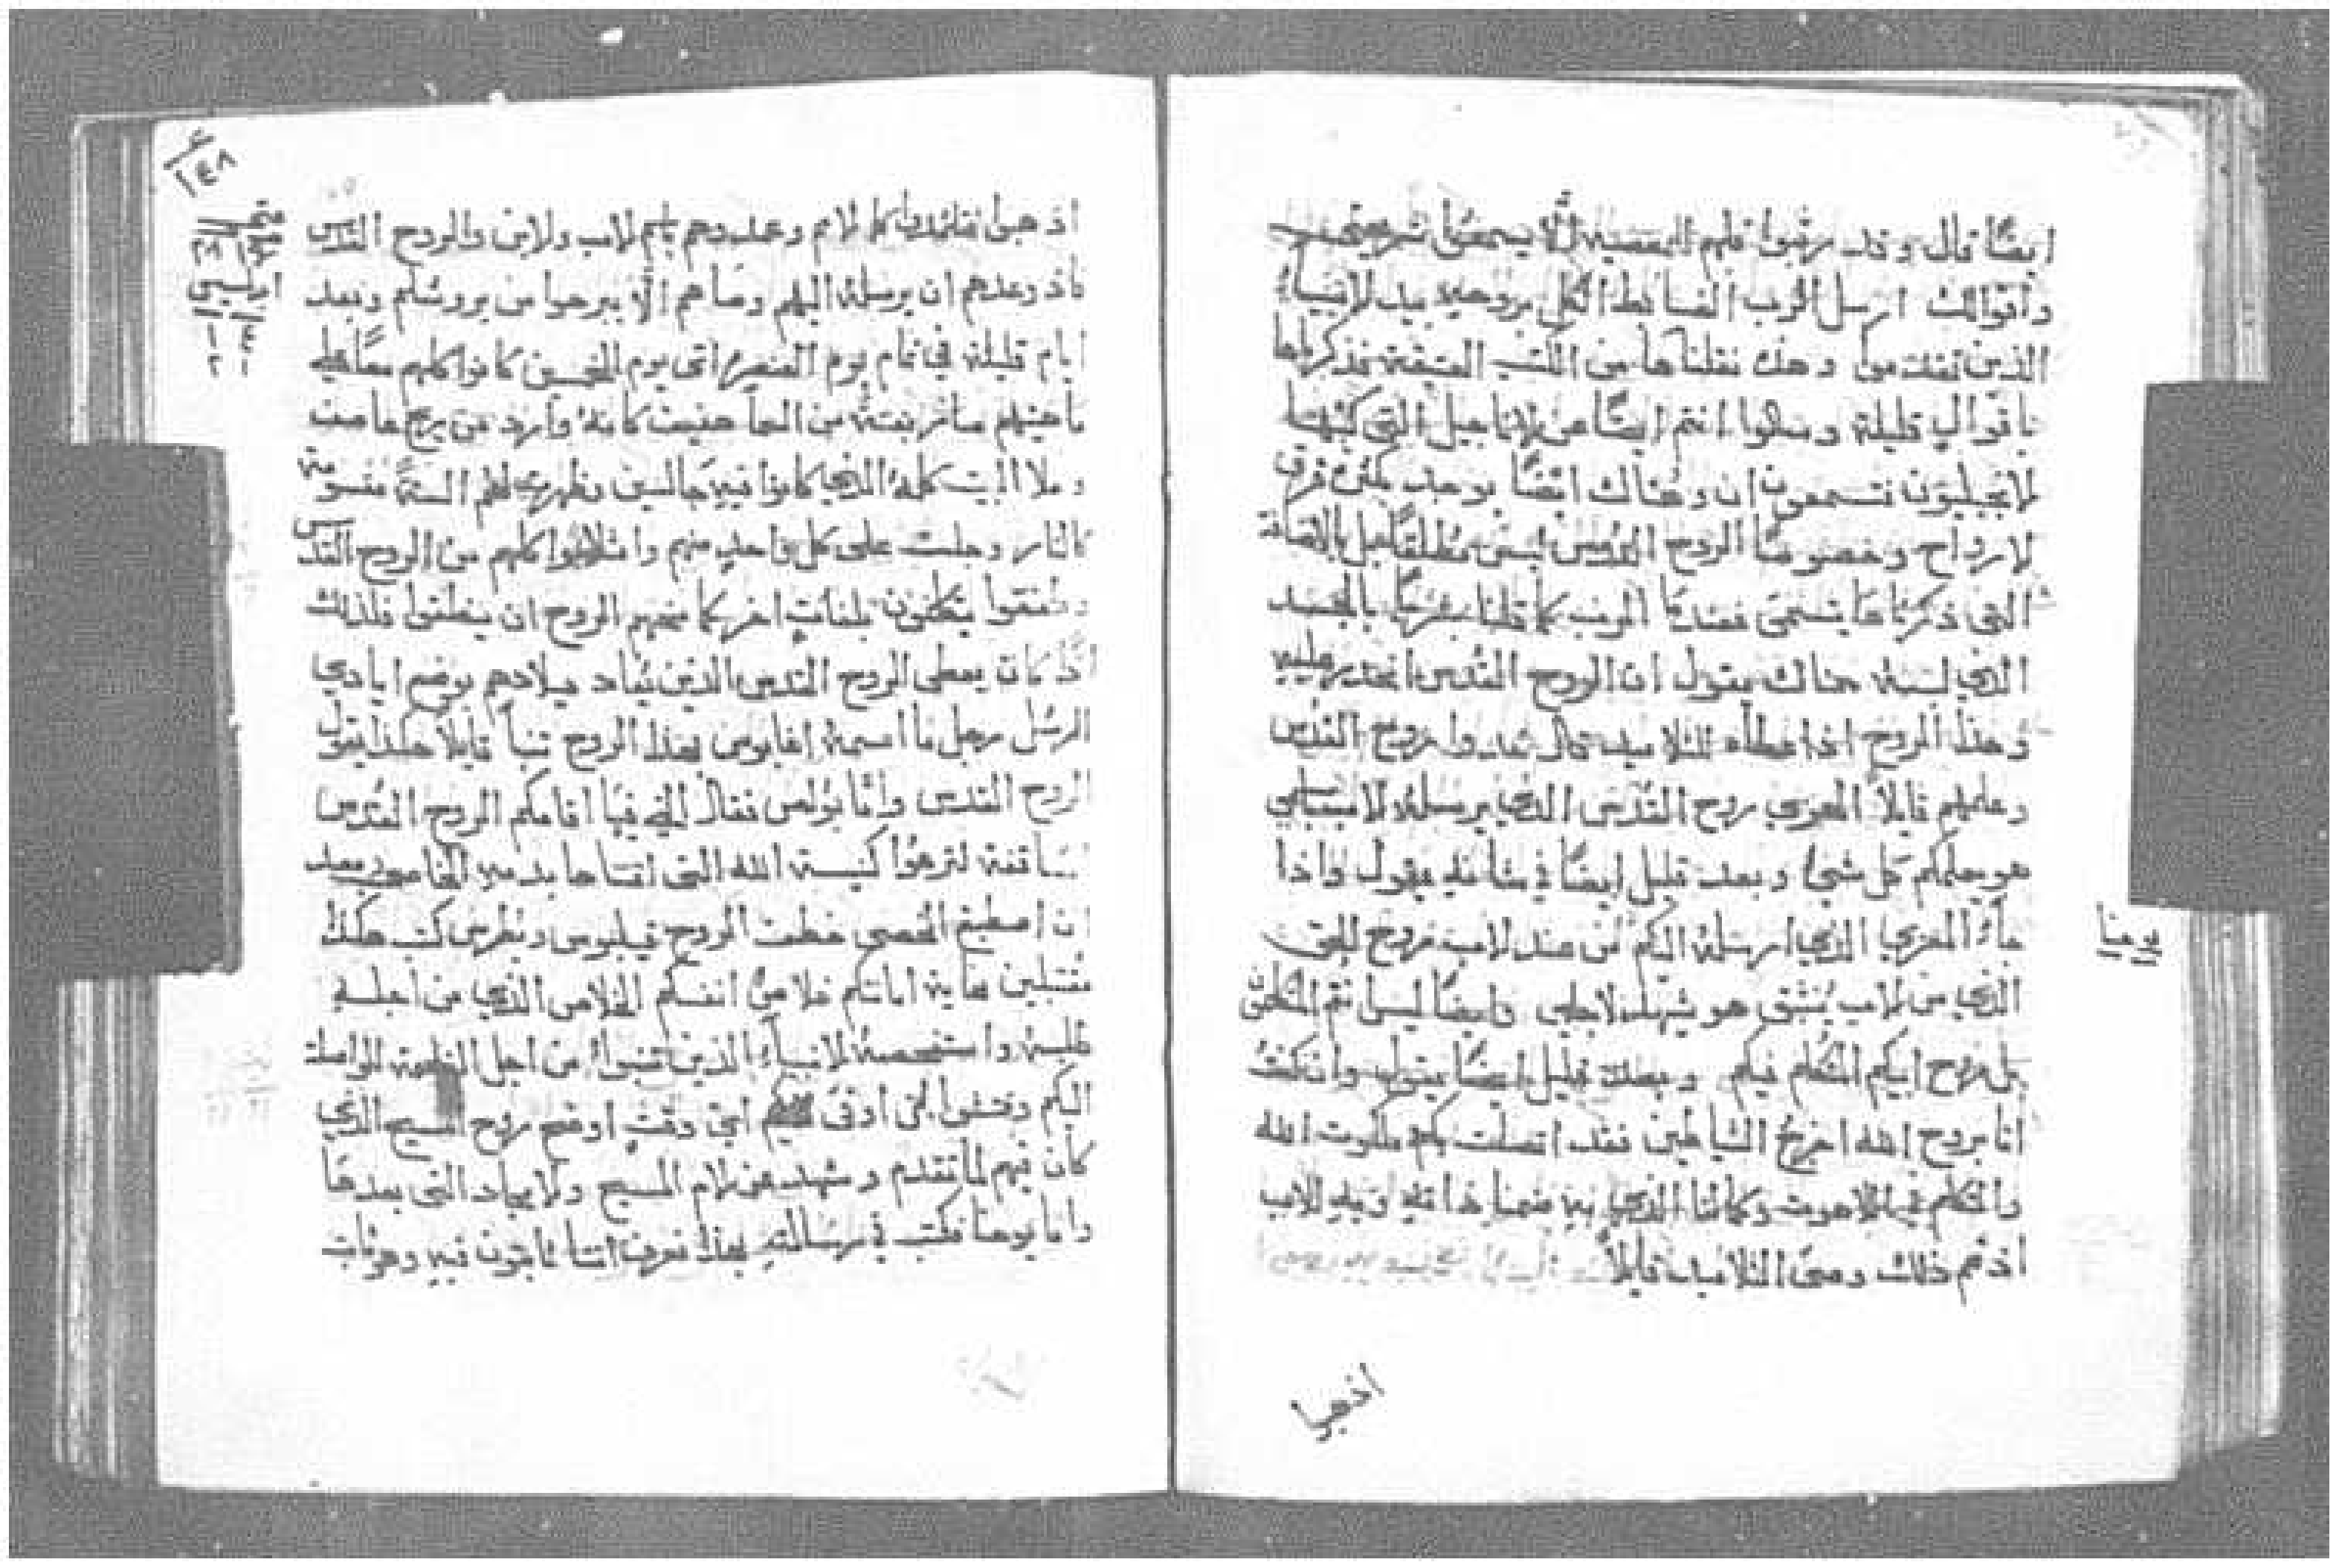 ايضًا قال وقد رتبوا قلبهم للمعصية الّا يسمعوا شريعتي
واقوالك ارسل الرب الضابط الكل بروحه بيد الانبياء
الذين تقدموا وهذه نقلناها من الكتب العتيقة فذكرناها
باقوالٍ قليلة وسلوا انتم ايضًا عن الاناجيل التي كتبها
الانجيليون تسمعون ان هناك ايضًا يوجد فرق
لارواح وخصوصًا الروح القدس ليس مطلقًا بل بالاضافة
التي ذكرناها يتسمى فعندما الرب كما قلنا بالجسد
الذي لبسه هناك يقول ان الروح القدس انحدر عليه
وهذا الروح اذ اعطاه للتلاميذ قال خدوا روح القدس
وعلمهم قايلًا المعزي روح القدس الذي يرسله لاب باسمي
هو يعلمكم كل شيء وبعد قليل ايضًا في شانه يقول واذا
جاء المعزي الذي ارسله اليكم من عند لاب روح الحق
الذي من لاب ينبثق هو يشهد لاجلي وايضًا ليس انتم المتكلمين
بل روح ابيكم المتكلم فيكم وبعد قليل ايضًا يقول وان كنت
انا بروح الله اخرج الشياطين فقد اتصلت بكم ملكوت الله
والمتكلم في اللاهوت وكمالنا الذي فيه ضمنا ذاته وفيه للاب
اذ تمم ذلك وصى التلاميذ قايلًا
يوحنا
اذهبوا
١٤٨
اذهبوا تلمذوا كل لامم وعمدوهم باسم لاب ولابن والروح القدس
متى
٢٨
فاذ وعدهم ان يرسله اليهم وصاهم الّا يبرحوا من يروشليم وبعد
ابركسيس
ايام قليلة في تمام يوم العنصرة اتى يوم الخمسين كانوا كلهم معًا
صار بغتة من السما حفيف كانه وارد من ريح عاصف
وملا البيت كله الذي كانوا فيه جالسين وظهرت لهم السنة مقسومة
كالنار وجلست على كل واحد منهم وامتلاوا كلهم من الروح القدس
وطفقوا يتكلمون بلغاتٍ اخر كما منحهم الروح ان ينطقوا فلذلك
اذًا كان يعطى الروح القدس الذين يعاد ميلادهم بوضع ايادي
الرسل رجل ما اسمه اغابوس بهذا الروح تنبا قايلًا هكذا يقول
الروح القدس وامّا بولس فقال التي فيها اقامكم الروح القدس
اساقفة لترعوا كنيسة الله التي اقتناها بدمه الخاص وبعد
ان اصطبغ الخصي خطف الروح فيلبوس وبطرس كتب هكذا
مقتبلين غاية امانتكم خلاص انفسكم الخلاص الذي من اجله
طلبه واستفحصه الانبياء الذين تنبوا من اجل النعمة الواصلة
اليكم وفتشوا اي وقتٍ اوضح روح المسيح الذي
كان فيهم لما تقدم وشهد عن الام المسيح ولامجاد التي بعدها
واما يوحنا فكتب في رسالته بهذا نعرف اننا ثابتون فيه وهو ثابت